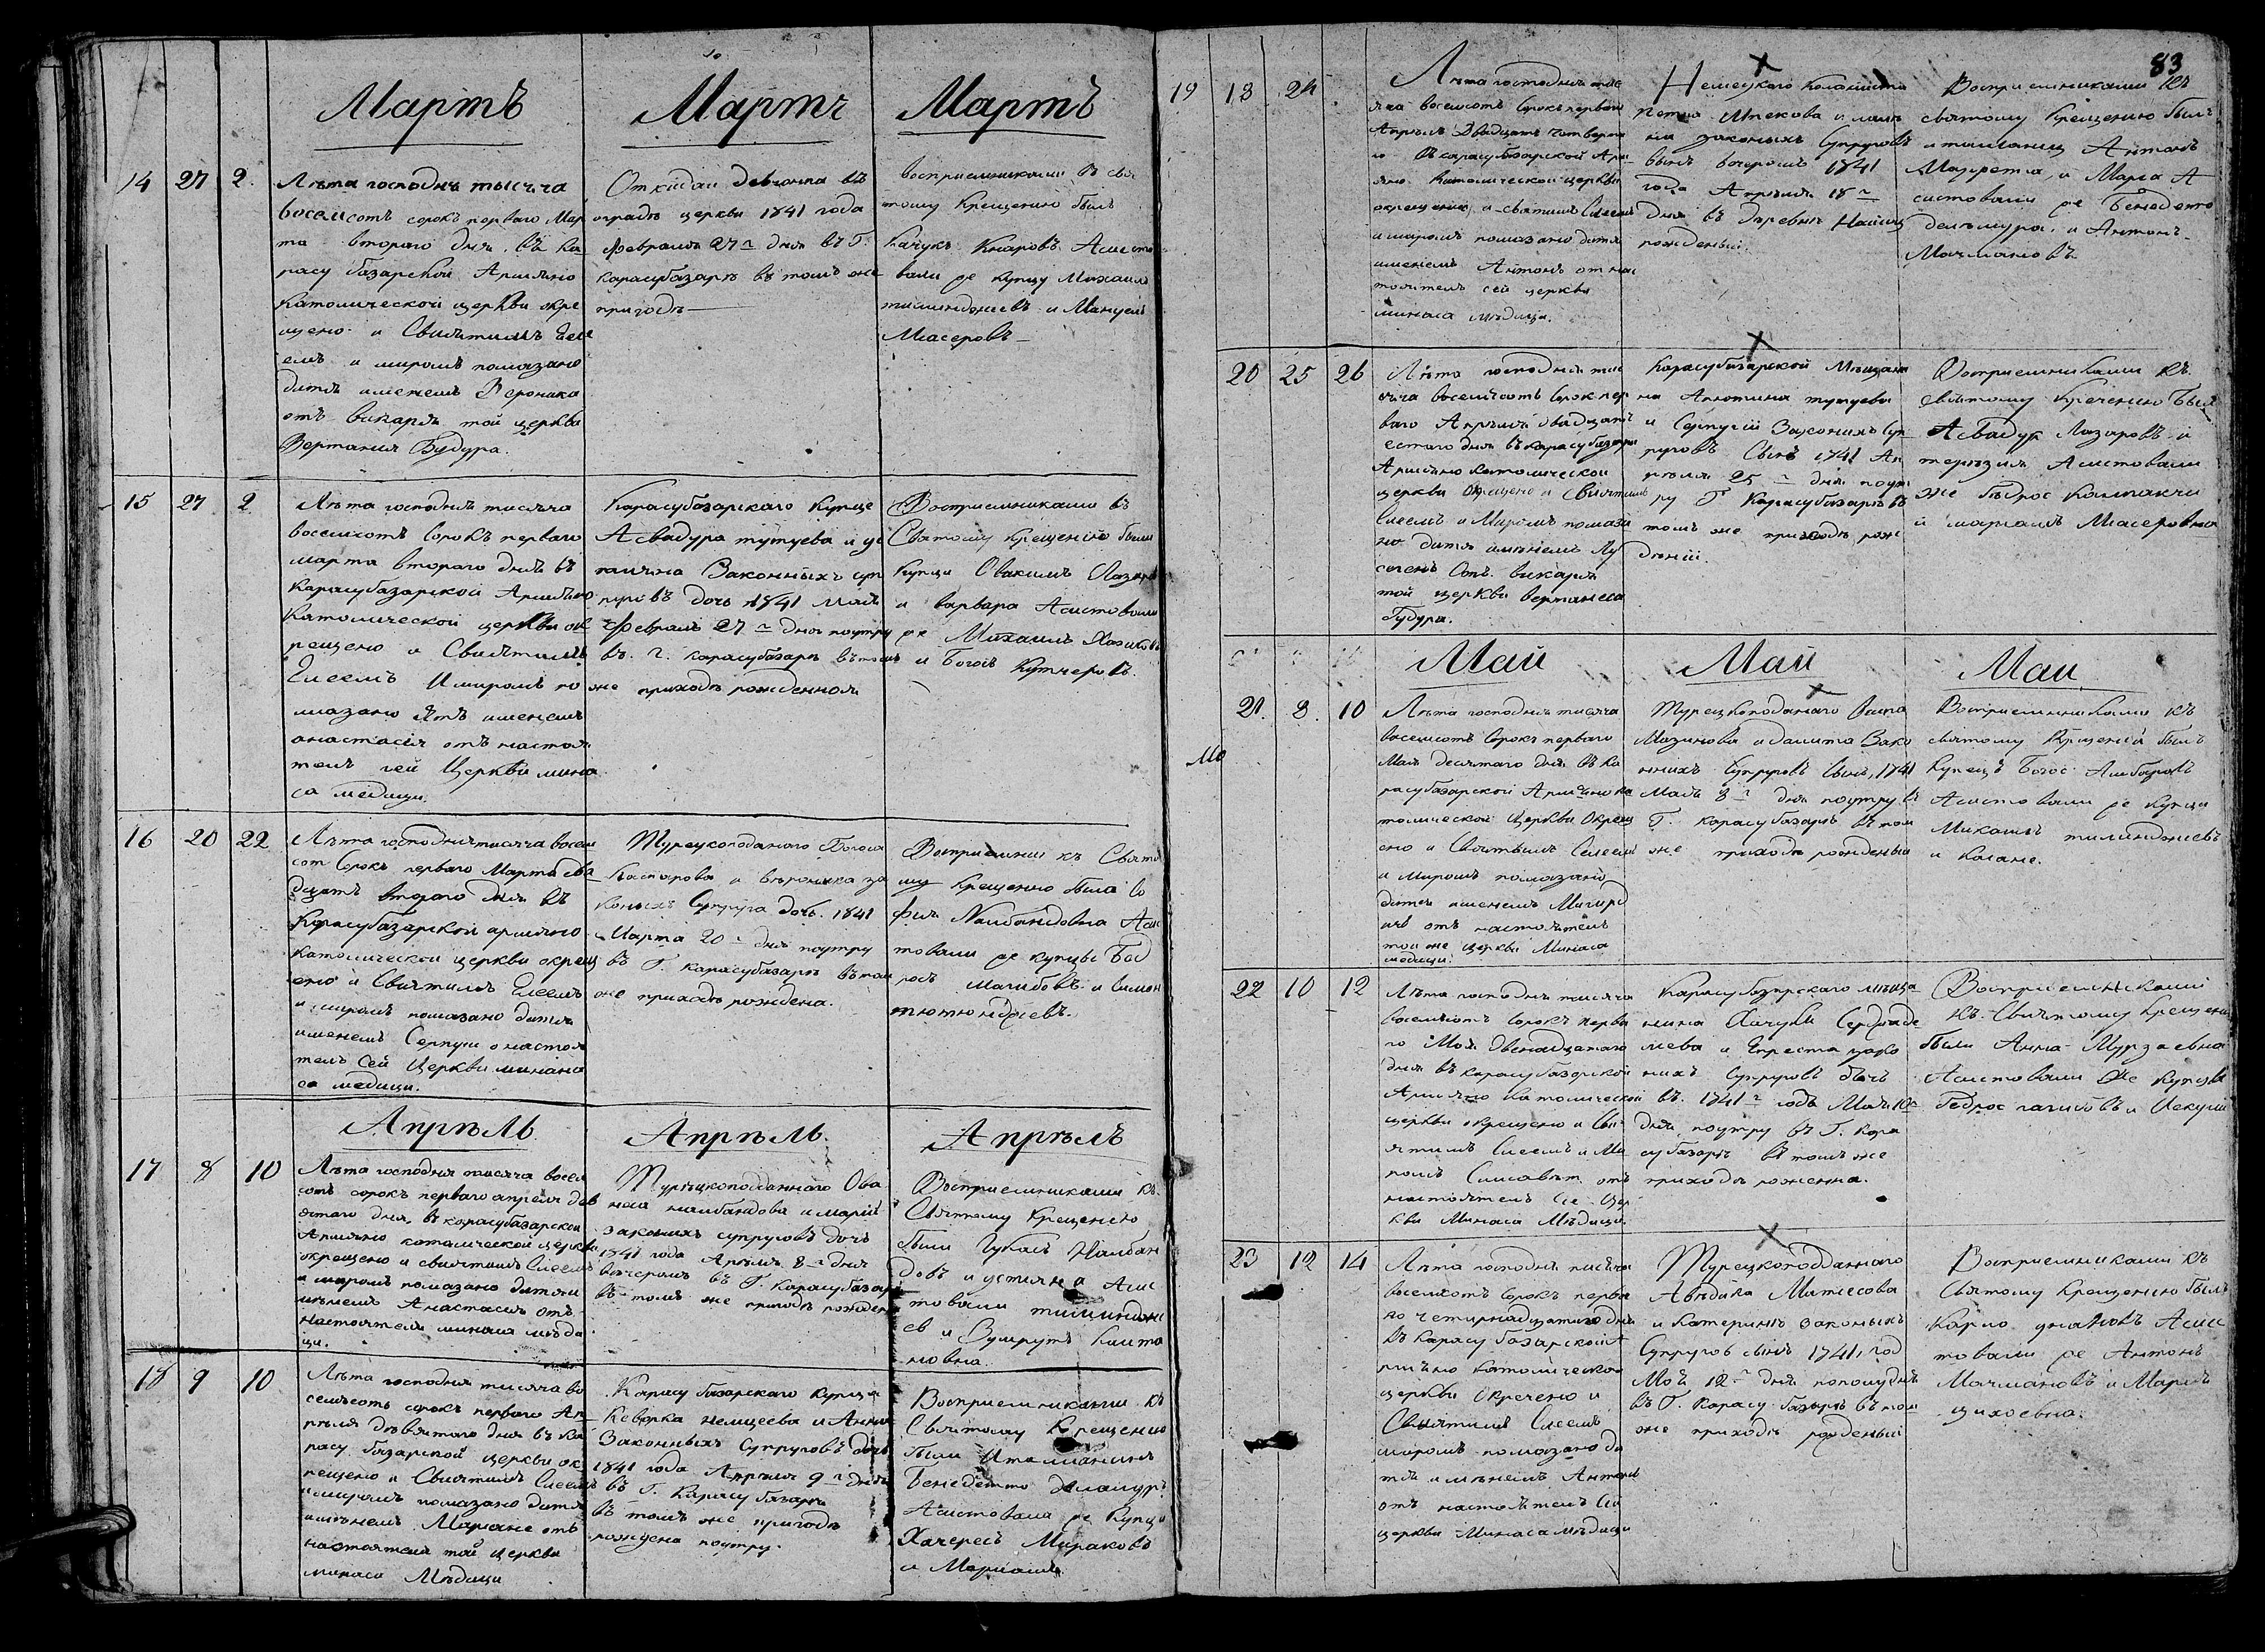 Мартъ Мартъ Мартъ
14 27 2.
Лѣта господнѣ тысяча
восемсотъ сорокъ перваго Мар
та втораго дня, въ Ка
расу базарской Армяно
Католической церкви окре
щено и Святимъ Елее
емъ и миромъ помазано
дитя именемъ Вероника
отъ викарія той церкви
Вертанеса Будура.
Откидан девчонка въ
оградѣ церкви 1841 года
февраля 27 дня въ Г.
Карасубазарѣ въ томъ же
приходѣ
восприемниками къ свя
тому крещенію былъ
Качукъ Кнаровъ. Асисто
вали же купцу Михаилъ
тилинджиевъ и Мануелъ
Миасеровъ
15 27 2
Лѣта господня тисяча
восемсотъ сорокъ перваго
марта втораго дня въ
Карасубазарской Армяно
Католической церкви ок
рещено и Святимъ
Елеемъ и миромъ по
мазано дитѣ именемъ
анастасія отъ настоя
теля сей Церкви мина
са медици.
Карасубазарского купце
Асвадура тутуева и
Законныхъ суп
руговъ дочь 1841
февраля 27 дня поутру
въ. г. карасубазарѣ въ томъ
же приходѣ рожденная
Восприемниками въ
Святому крещенію были
купци Овакимъ Лазаръ
и варвара Асистовали
же Михаилъ Хазиковъ
и Богосъ Кутчеровъ.
16 20 22
Лѣта господня тисяча восем
сот сорокъ перваго Марта два
дцать втораго дня въ
Карасубазарской армяно
католической церкви окрещ
ено и Святимъ Елеемъ
и миромъ помазано дитя
именемъ Серпуи о настоя
тель сей Церкви минаса
са медици.
Турецкоподаного Богоса
Каспарова и вѣроника за
коныхъ Супруга дочь. 1841
Марта 20 дня поутру
въ Г. карасубазарѣ въ том
же приходѣ рождена.
Восприемник къ Свято
му крещению была Со
фия Налбандовна Асис
товали же купцы Бед
росъ Магибовъ и Симон
тютюнджиевъ.
Апрѣль. Апрѣль. Апрѣль
17 8 10
Лѣта господня тисяча восем
сотъ сорокъ перваго апреля дев
ятаго дня, въ карасубазарской
Армяно католической церкви
окрещено и святимъ Елеемъ
и миромъ помазано дитя и
мѣнемъ Анастасія отъ
настоятеля минаса мѣди
ци.
Турецкоподданнаго Ова
неса налбандова и марій
законихъ супруговъ дочь
1841 года Апреля 8 дня
вечеромъ въ Г. Карасубазарѣ
въ томъ же приходѣ рожден
Восприемниками къ
Святому Крещенею
были Гукасъ Налбан
довъ и устияна Асис
товали тилиндже
ев и Вумрутъ Кишта
новна.
18 9 10
Лѣта господня тисяча во
семъсотъ сорокъ перваго Ап
рѣля дѣвятого дня въ ка
расу базарской церкви ок
рещено и Святимъ Елеемъ
и миромъ помазано дитя
имѣнемъ Мариане отъ
настоятеля той церкви
минаса Мѣдици
Карасу базарского купца
Кеворка немцеева и Анни
Законныхъ Супруговъ дочь
1841 года Апрѣля 9 дня
въ Г. Карасубазарѣ
въ томъ же приходѣ
рождена поутру.
Восприемниками къ
Святому Крещению
были Италианинъ
Бенедетто деламуръ
Асистовали же Купци
Хачересъ Мираковъ
и Мариамъ.
83
19 18 24
Лѣта господня тис
яча восемсотъ сорокъ перваго
Апрѣля двадцать четверта
го въ карасубазарской Арм
яно Католической церкви
окрещено и святимъ Елеемъ
и миромъ помазано дитя
именемъ Антонъ от нас
тоятель сей церкви
минаса мѣдици.
Немецкого колониста
Петна Мнекова и
на законыхъ Супруговъ
вынъ вечеромъ 1841
года Апрѣля 18
дня въ деревнѣ
рожденый.
Восприемниками къ
святому крещению былъ
италианец Антонъ
Марія А
систовали же Бенедето
деламура, и Антонъ
Мачмановъ
20 25 26
Лѣта господня тис
яча восемсотъ сорок пер
ваго Апрѣля двадцать
естаго дня въ карасубазарѣ
Армяно католической
церкви окрещено и Святимъ
Елеемъ и Миромъ помаза
но дитя имѣнемъ Лу
сегенъ Отъ. викария
той церкви вертанеса
Будура.
Карасубазарской Мѣщани
на Антона тутуева
и Серпугій Законихъ суп
руговъ Сынъ 1841 Ап
рѣля 25 дня поут
ру Г. Карасубазарѣ въ
томъ же приходѣ рож
дѣній.
Восприемниками къ
святому Креченію был
Асвадур Лазаровъ и
терезия Асистовали
же бѣдрос Калпакчи
и мариамъ Миасеровна
Май Май Май
21. 8. 10
Лѣта господня тисяча
восемсотъ сорокъ перваго
Мая десятаго дня въ Ка
расубазарской Армяно ка
толической Церкви Окрещ
ено и Святымъ Елеемъ
и миромъ помазано
дитя именемъ Мигирд
ичъ отъ настоятель
той же церкви Минаса
медици.
Турецкоподанаго
Мазинова и далита Зако
нныхъ Супруговъ сынъ, 1841
Мая 8 дня поутру въ
Г. карасубазарѣ въ том
же приходѣ рожденый
Восприемниками къ
святому Крещеній былъ
Купецъ Богос Амбаровъ
Асистовали же Купци
Микаилъ тилинджиевъ
и Какане.
22 10 12
Лѣта господня тисяча
восемсотъ сорокъ перва
го Мая двенадцатаго
дня въ карасубазарской
Армяно католической
церкви окрещено и Св
ятимъ Елеемъ и Ми
ромъ Елисавет. отъ
настоятель Сей Цер
кви Минаса Мѣдици.
Карасубазарского мѣща
нина Хачуби
и Епреста зако
нихъ Супруговъ дочь
въ. 1841 годѣ Мая 10
дня, поутру въ Г. кара
субазарѣ въ томъ же
приходѣ рожденна.
Восприемниками
къ Святому Крещени
были Анна Мурзаевна
Асистовали же Купцы
бедрос магибовъ и Искули
23 12 14
Лѣта господня тисяча
восемсотъ сорокъ перва
го четырнадцатаго дня
въ карасубазарской А
рмяно католической
церкви Окречено и
Святимъ Елеемъ
миромъ помазано ди
тя имѣнемъ Антонъ
отъ настоятель Сей
церкви Минаса мѣдици
Турецкоподданнаго
Авѣдика Матесова
и Катеринъ законыхъ
Супругов сынъ 1841 год
Май 12 дня пополуднѣ
въ Г. Карасубазарѣ въ том
же приходѣ рожденый
Восприемниками къ
Святому Крещению былъ
Карло Асис
товали же Антонъ
Мачмановъ и Мария